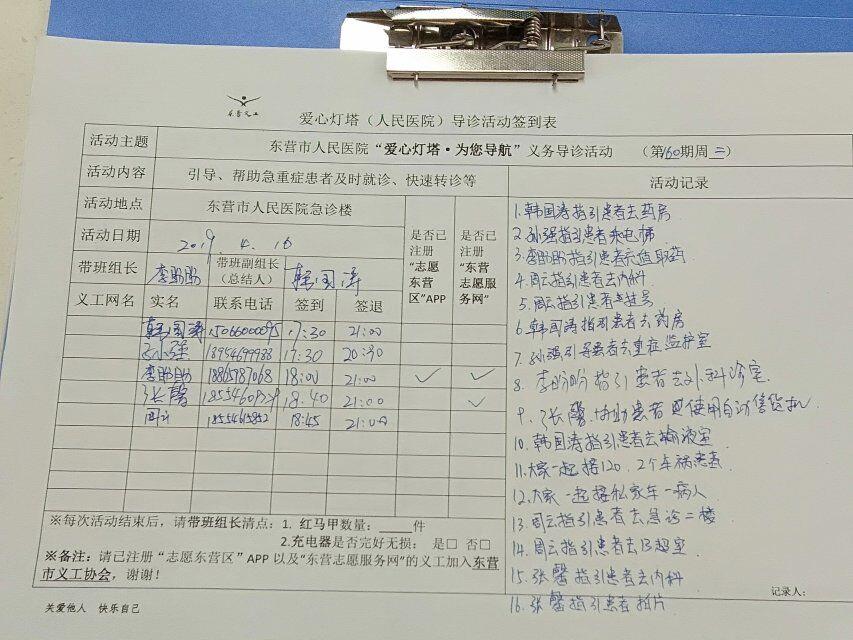 东营义工
爱心灯塔（人民医院）导诊活动签到表
活动主题 东营市人民医院“爱心灯塔·为您导航”义务导诊活动 （第160期周二）
活动内容 引导、帮助急重症患者及时就诊、快速转诊等
活动地点 东营市人民医院急诊楼
活动日期 2019.4.16
是否已注册“志愿东营区”APP
是否已注册“东营志愿服务网”
带班组长 李盼盼 带班副组长（总结人） 韩国涛
义工网名 实名 联系电话 签到 签退
韩国涛 15066000095 17:30 21:00
孙强 18954699988 17:30 20:30
李盼盼 18865787068 18:00 21:00 ✓ ✓
张馨 18:40 21:00 ✓
周云 18:45 21:00
※每次活动结束后，请带班组长清点：1. 红马甲数量：____件
2.充电器是否完好无损： 是□ 否□
※备注：请已注册“志愿东营区”APP 以及“东营志愿服务网”的义工加入东营
市义工协会，谢谢！
关爱他人 快乐自己
活动记录
1.韩国涛指引患者去药房
2.孙强指引患者乘电梯
3.李盼盼指引患者充值取药
4.周云指引患者去内科
5.周云指引患者去挂号
6.韩国涛指引患者去药房
7.孙强引导患者去重症监护室
8.李盼盼指引患者去外科诊室.
9.张馨.协助患者使用自动售货机.
10.韩国涛指引患者去输液室
11.大家一起接120，2个车祸患者
12.大家一起接私家车一病人
13.周云指引患者去急诊二楼
14.周云指引患者去B超室
15.张馨指引患者去内科
16.张馨指引患者拍片
记录人：